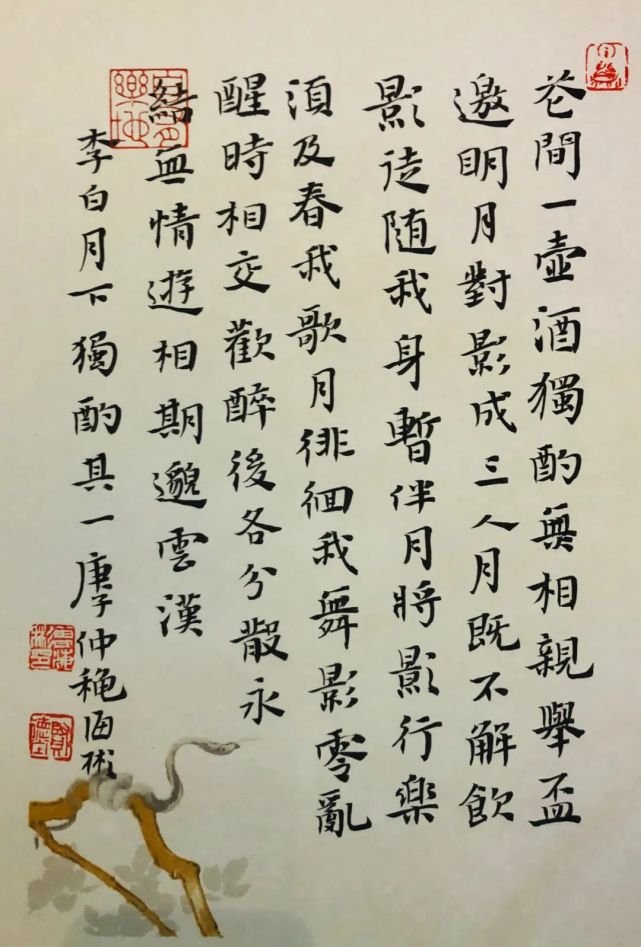 花間一壺酒獨酌無相親舉盃
邀明月對影成三人月既不解飲
影徒随我身暫伴月將影行樂
須及春我歌月徘徊我舞影零亂
醒時相交歡醉後各分散永
結無情遊相期邈雲漢
李白月下獨酌其一庚子仲穐海彬